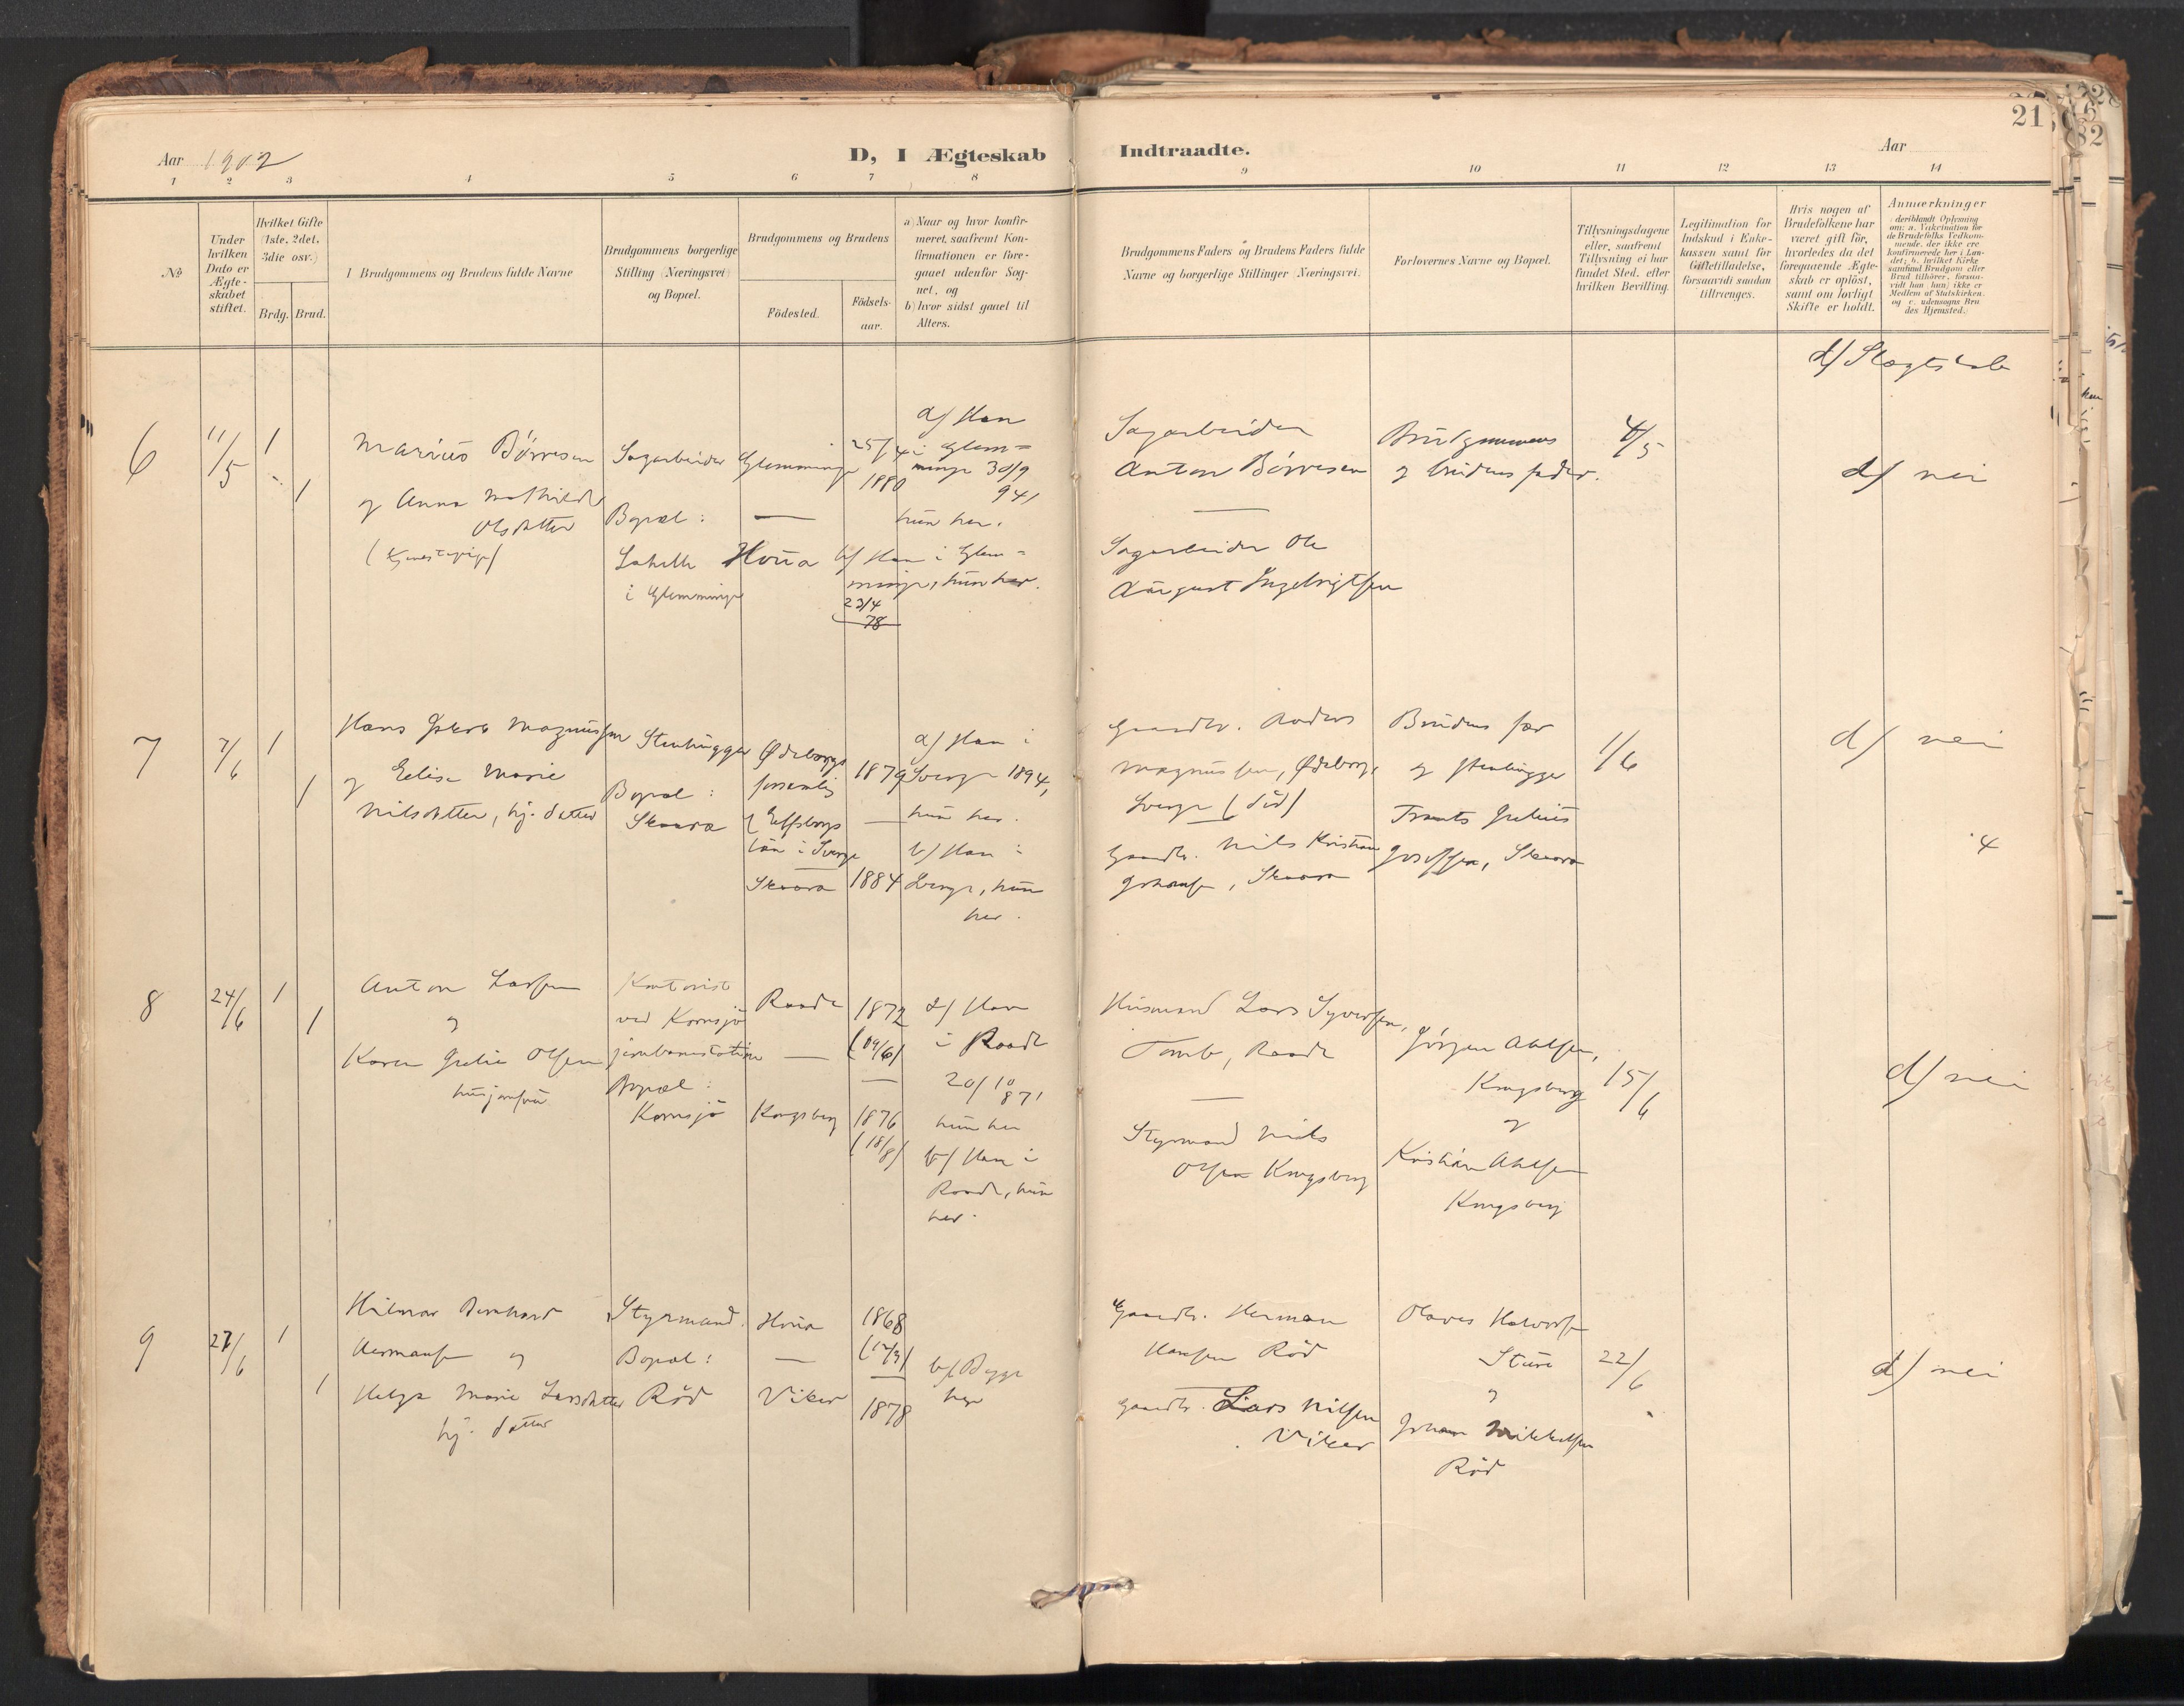 21
Aar 1902
D, I Ægteskab Indtraadte.
Aar
1 2 3 4 5 6 7 8 9 10 11 12 13 14
№
Under hvilken Dato er Ægteskabet stiftet.
Hvilket Gifte (1ste, 2det, 3die osv.)
Brdg. Brud.
1 Brudgommens og Brudens fulde Navne
Brudgommens borgerlige Stilling (Næringsvei) og Bopæl.
Brudgommens og Brudens
Födested.
Födsels-aar.
a) Naar og hvor konfir-
meret, saafremt Kon-
firmationen er fore-
gaaet udenfor Sog-
net, og
b) hvor sidst gaaet til
Alters.
Brudgommens Faders og Brudens Faders fulde
Navne og borgerlige Stillinger (Næringsvei).
Forlovernes Navne og Bopæl.
Tillysningsdagene
eller, saafremt
Tillysning ei har
fundet Sted, efter
hvilken Bevilling.
Legitimation for
Indskud i Enke-
kassen samt for
Giftetilladelse,
forsaavidt saadan
tiltrænges.
Hvis nogen af
Brudefolkene har
været gift för,
hvorledes da det
foregaaende Ægte-
skab er oplöst,
samt om lovligt
Skifte er holdt.
Anmærkninger
(deriblandt Oplysning
om: a. Vakcination for
de Brudefolks Vedkom-
mende, der ikke ere
konfirmerede her i Lan-
det; b. hvilket Kirke
samfund Brudgom eller
Brud tilhörer, forsaa-
vidt han (hun) ikke er
Medlem af Statskirken,
og c. udensogns Bru
des Hjemsted.)
d/ Slægtskab
6
11/5
1
1
Marius Börresen
og Anna Mathilde
Olsdatter
(Tjenestepige)
Sagarbeider
Bopæl:
Lahelle
i Glemminge
Glemminge
—
Hvua
25/4
1880
23/4
78
a/ Han
i Glem=
minge 30/9
94,
hun her.
b/ Han i Glem=
minge, hun her.
Sagarbeider
Anton Börresen
—
Sagarbeider Ole
August Ingebrigtsen
Brudgommens
og brudens fader.
4/5
d/ nei
7
7/6
1
1
Hans Jakob Magnussen
og Elise Marie
Nilsdatter, hj. datter
Stenhugger
Bopæl:
Skaara
Ödeborgs
forsamling
i Elfsborgs
län i Sverge
—
Skaara
1879
—
1884
a/ Han i
Sverge 1894,
hun her.
b/ Han i
Sverge, hun
her.
Gaardbr. Anders
Magnussen, Ödeborg,
Sverge (död)
Gaardb. Nils Kristian
Johansen, Skaara
Brudens far
og stenhugger
Frants Julius
Josefsen, Skaara
1/6
d/ nei
4
8
24/6
1
1
Anton Larsen
og
Karen Julie Olsen
husjomfru
Kontorist
ved Kornsjö
jernbanestation
Bopæl:
Kornsjö
Raade
—
Kongsberg
1872
—
1876
(18/8)
a/ Han
i Raade
20/10
87,
hun her
b/ Han i
Raade, hun
her.
Husmand Lars Syversen,
Tomb, Raade
—
Styrmand Niels
Olsen Kongsberg
Jörgen Ahlsen,
Kongsberg
og
Kristian Ahlsen
Kongsberg
15/6
d/ nei
9
27/6
1
1
Hilmar Bernhard
Hermansen og
Helga Marie Larsdatter
hj. datter
Styrmand.
Bopæl:
Röd
Hvua
—
Viker
1868
—
1878
b/ Begge
her
Gaardb. Herman
Hansen Röd
—
Gaardb. Lars Nilsen
Viker
Olaves Halvorsen
Sture
og
Johan Mikkelsen
Röd
22/6
d/ nei